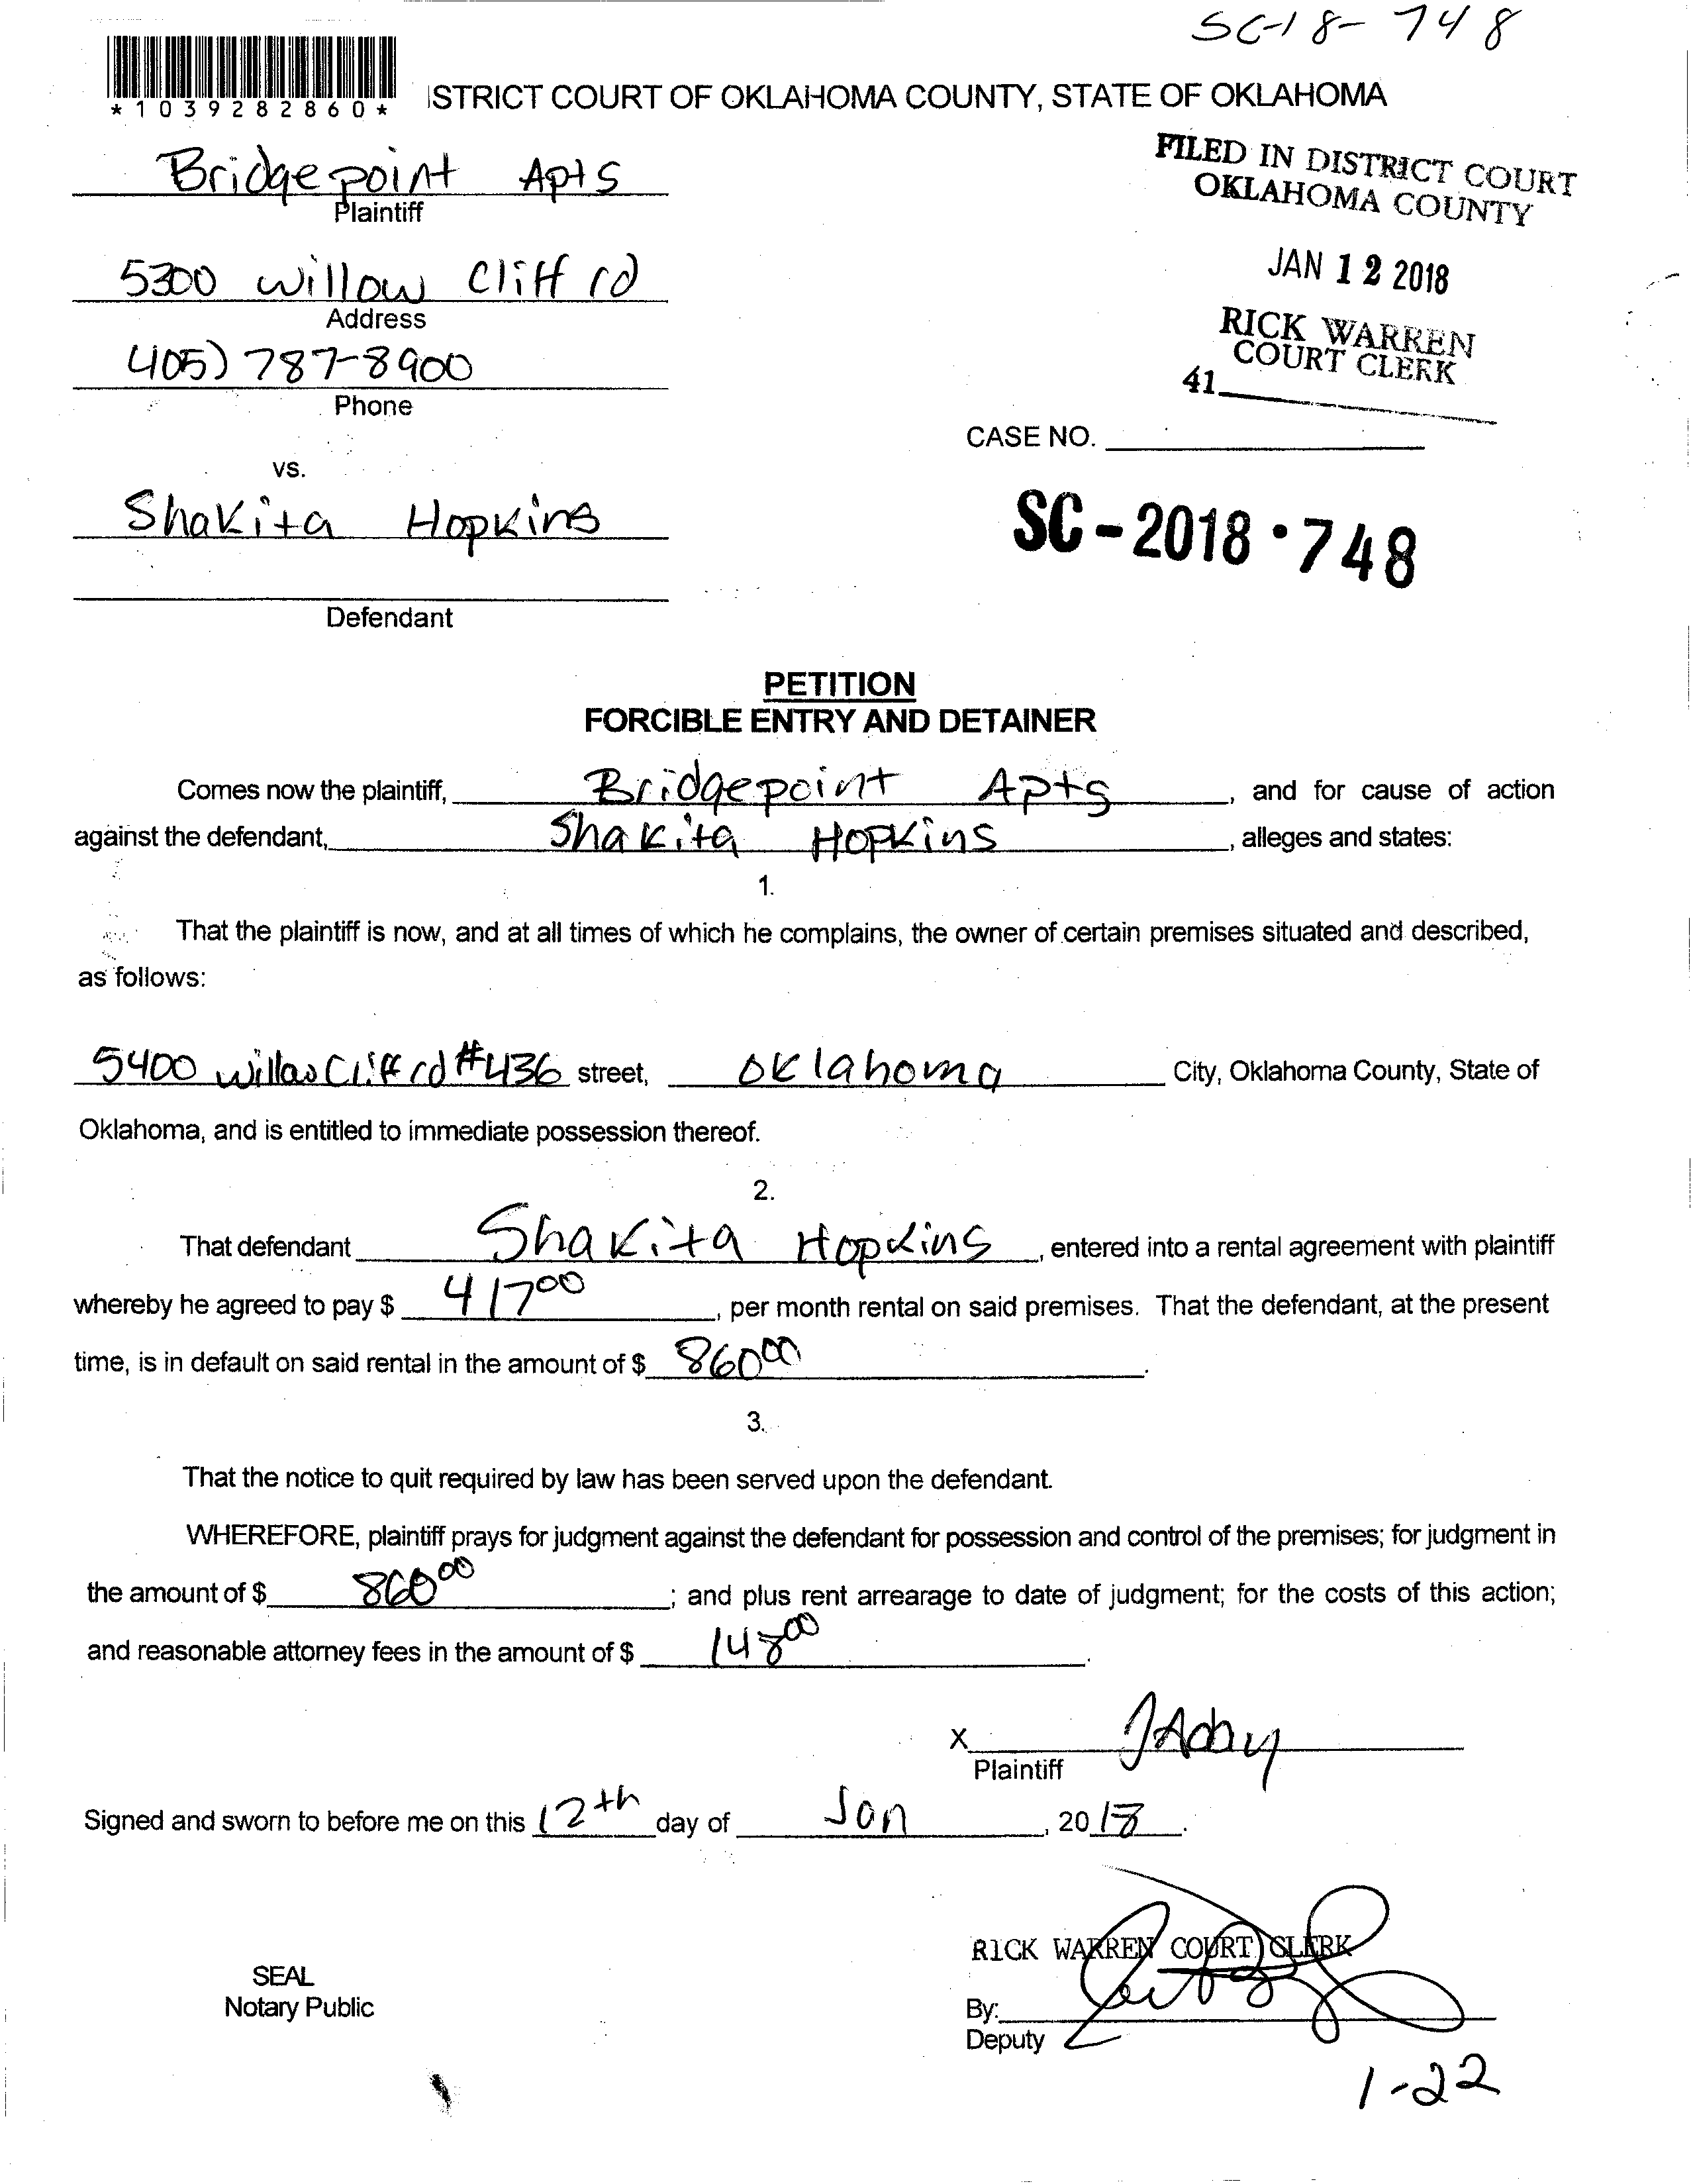 SC-18-748
*1039282860*
ISTRICT COURT OF OKLAHOMA COUNTY, STATE OF OKLAHOMA
Bridgepoint Apts
Plaintiff
FILED IN DISTRICT COURT
OKLAHOMA COUNTY
5300 Willow Cliff rd
Address
JAN 12 2018
405) 787-8900
Phone
RICK WARREN
COURT CLERK
41
CASE NO.
vs.
Shakita Hopkins
SC-2018·748
Defendant
PETITION
FORCIBLE ENTRY AND DETAINER
Comes now the plaintiff, Bridgepoint Apts, and for cause of action
against the defendant, Shakita Hopkins, alleges and states:
1.
That the plaintiff is now, and at all times of which he complains, the owner of certain premises situated and described,
as follows:
5400 Willow Cliff rd #436 street, Oklahoma City, Oklahoma County, State of
Oklahoma, and is entitled to immediate possession thereof.
2.
That defendant Shakita Hopkins, entered into a rental agreement with plaintiff
whereby he agreed to pay $ 417 00, per month rental on said premises. That the defendant, at the present
time, is in default on said rental in the amount of $ 860 00.
3.
That the notice to quit required by law has been served upon the defendant.
WHEREFORE, plaintiff prays for judgment against the defendant for possession and control of the premises; for judgment in
the amount of $ 860 00; and plus rent arrearage to date of judgment; for the costs of this action;
and reasonable attorney fees in the amount of $ 148 00.
X
Plaintiff
Signed and sworn to before me on this 12th day of Jan, 2018.
RICK WARREN COURT CLERK
SEAL
Notary Public
By:
Deputy
1-22